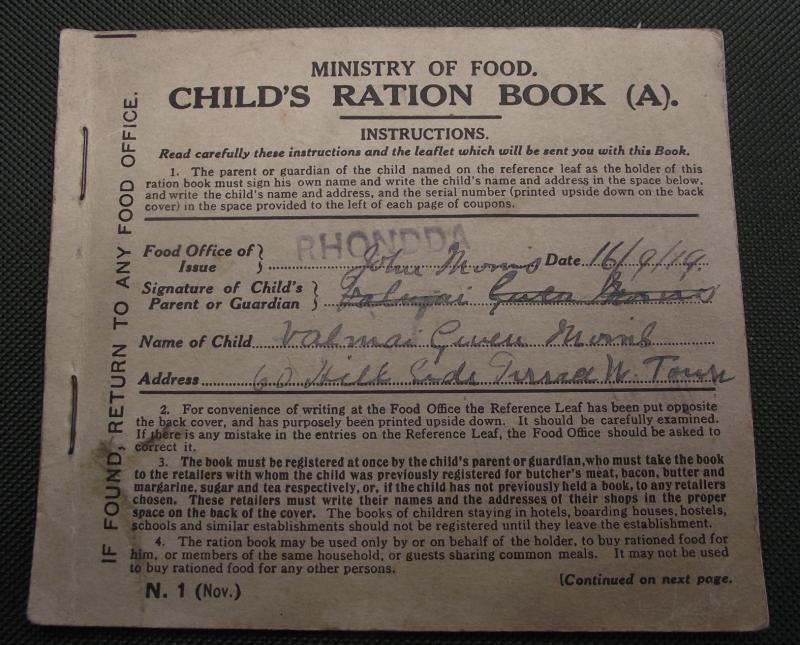 MINISTRY OF FOOD.
CHILD'S RATION BOOK (A).
INSTRUCTIONS.
Read carefully these instructions and the leaflet which will be sent you with this Book.
1. The parent or guardian of the child named on the reference leaf as the holder of this
ration book must sign his own name and write the child's name and address in the space below,
and write the child's name and address, and the serial number (printed upside down on the back
cover) in the space provided to the left of each page of coupons.
RHONDDA
Food Office of Issue } John Morris Date 16/9/19
Signature of Child's Parent or Guardian } Valmai Gwen Morris
Name of Child Valmai Gwen Morris
Address 60 Hill Side Terrace W. Town
2. For convenience of writing at the Food Office the Reference Leaf has been put opposite
the back cover, and has purposely been printed upside down. It should be carefully examined.
If there is any mistake in the entries on the Reference Leaf, the Food Office should be asked to
correct it.
3. The book must be registered at once by the child's parent or guardian, who must take the book
to the retailers with whom the child was previously registered for butcher's meat, bacon, butter and
margarine, sugar and tea respectively, or, if the child has not previously held a book, to any retailers
chosen. These retailers must write their names and the addresses of their shops in the proper
space on the back of the cover. The books of children staying in hotels, boarding houses, hostels,
schools and similar establishments should not be registered until they leave the establishment.
4. The ration book may be used only by or on behalf of the holder, to buy rationed food for
him, or members of the same household, or guests sharing common meals. It may not be used
to buy rationed food for any other persons.
[Continued on next page.
N. 1 (Nov.)
IF FOUND, RETURN TO ANY FOOD OFFICE.